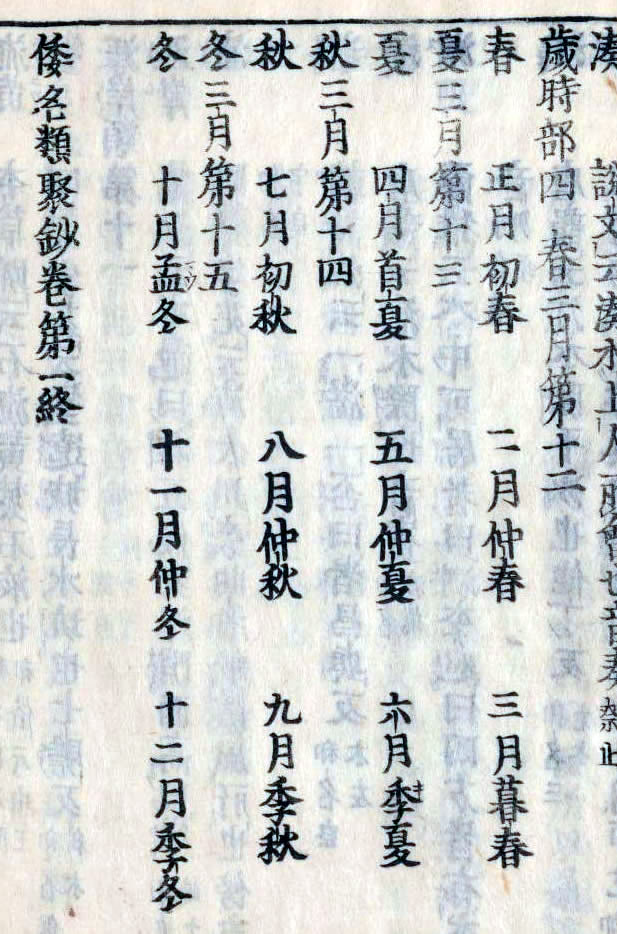 湊 説文云湊水上人所會也音奏
歳時部四 春三月第十二
春 正月初春 二月仲春 三月暮春
夏三月第十三
夏 四月首夏 五月仲夏 六月季夏
秋三月第十四
秋 七月初秋 八月仲秋 九月季秋
冬三月第十五
冬 十月孟冬 十一月仲冬 十二月季冬
倭名類聚鈔卷第一終